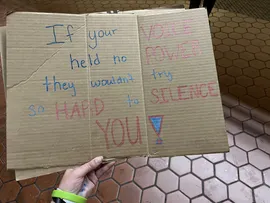 If your VOICE
held no POWER
they wouldn't try
so HARD to SILENCE
YOU!